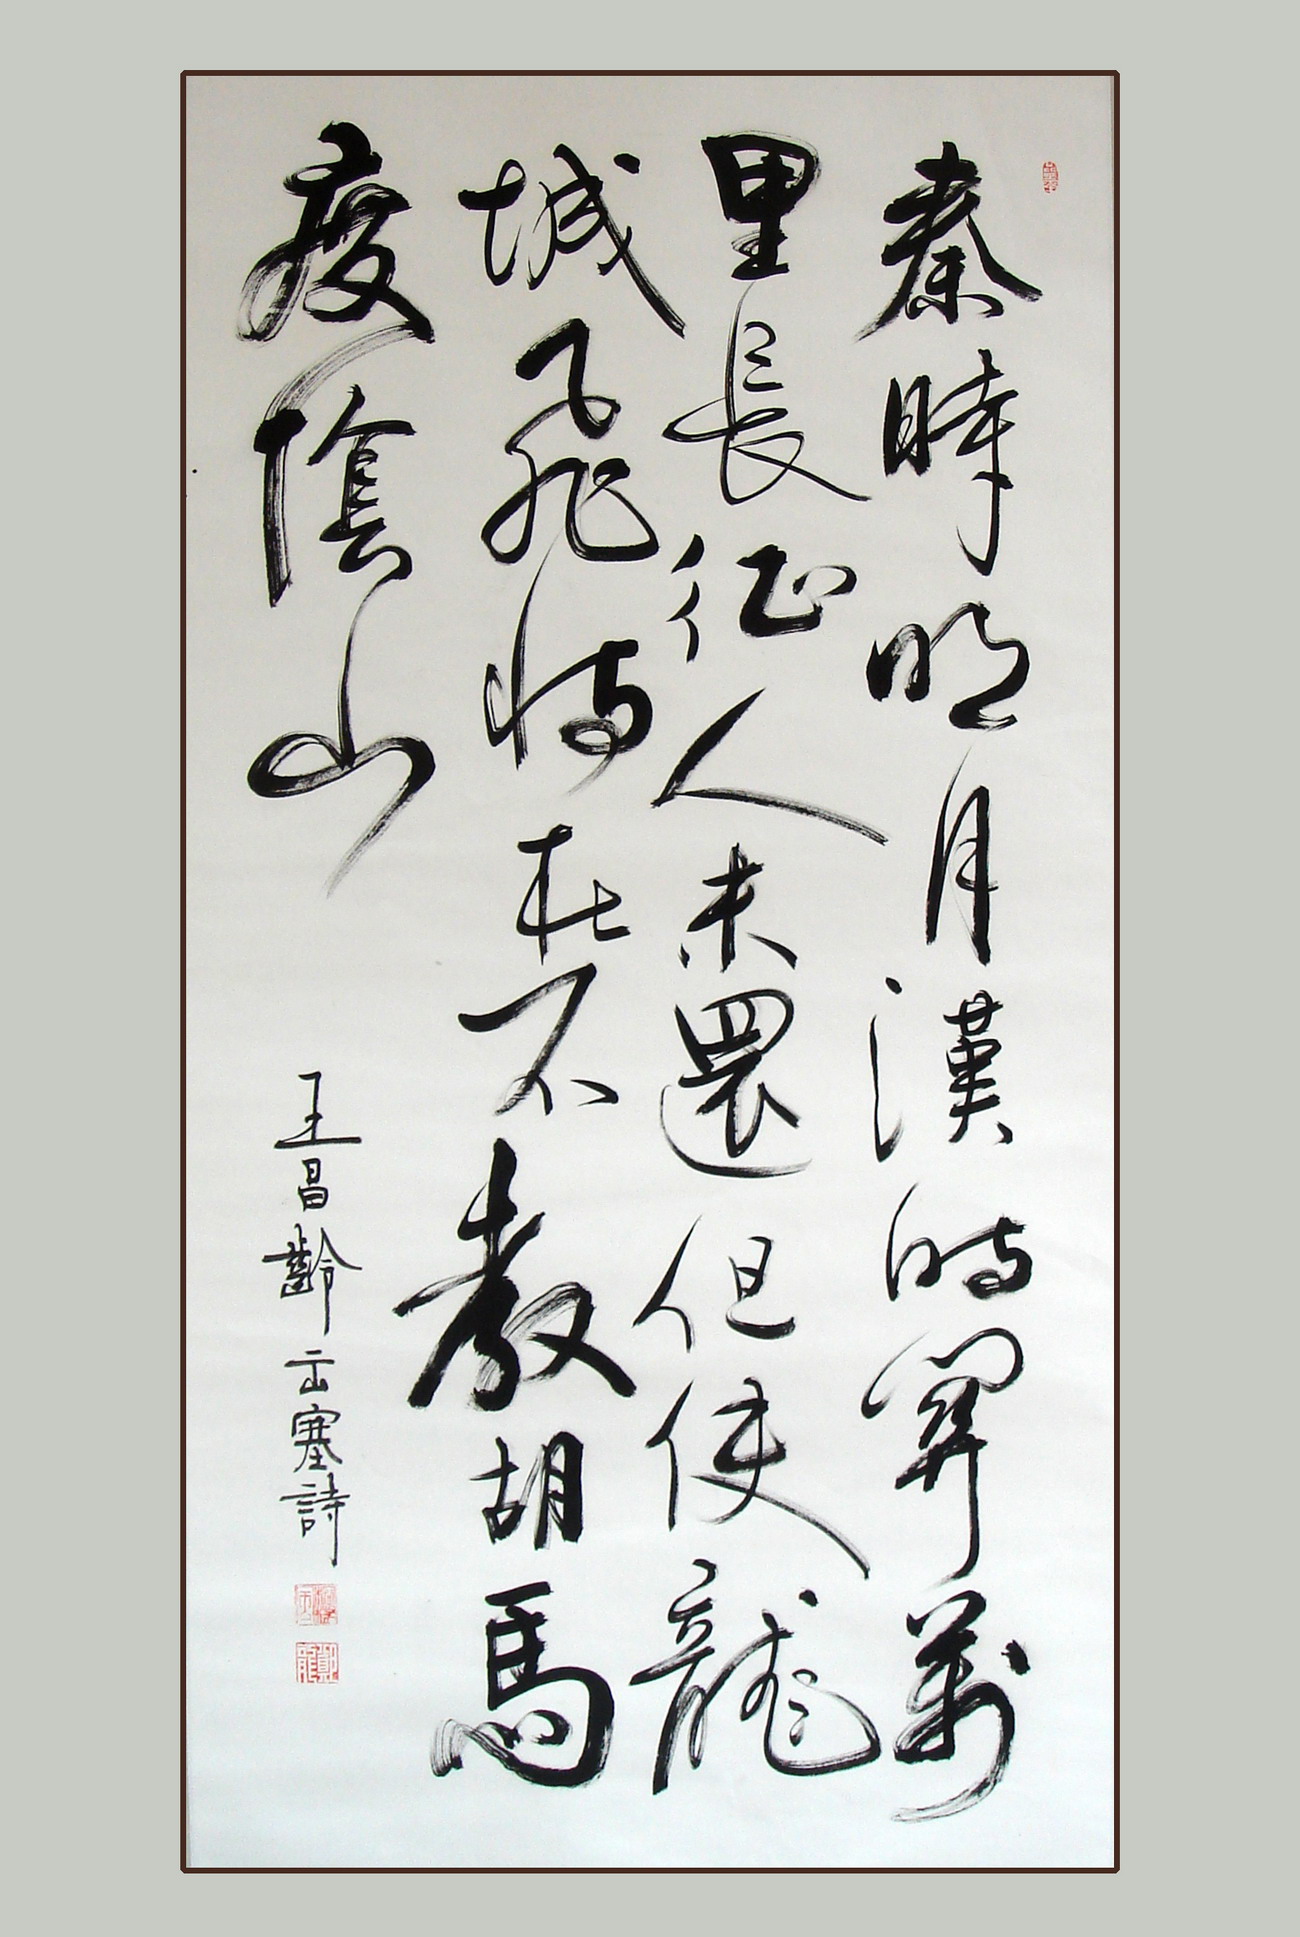 秦時明月漢時關萬
里長征人未還但使龍
城飛將在不教胡馬
度陰山
王昌齡出塞詩